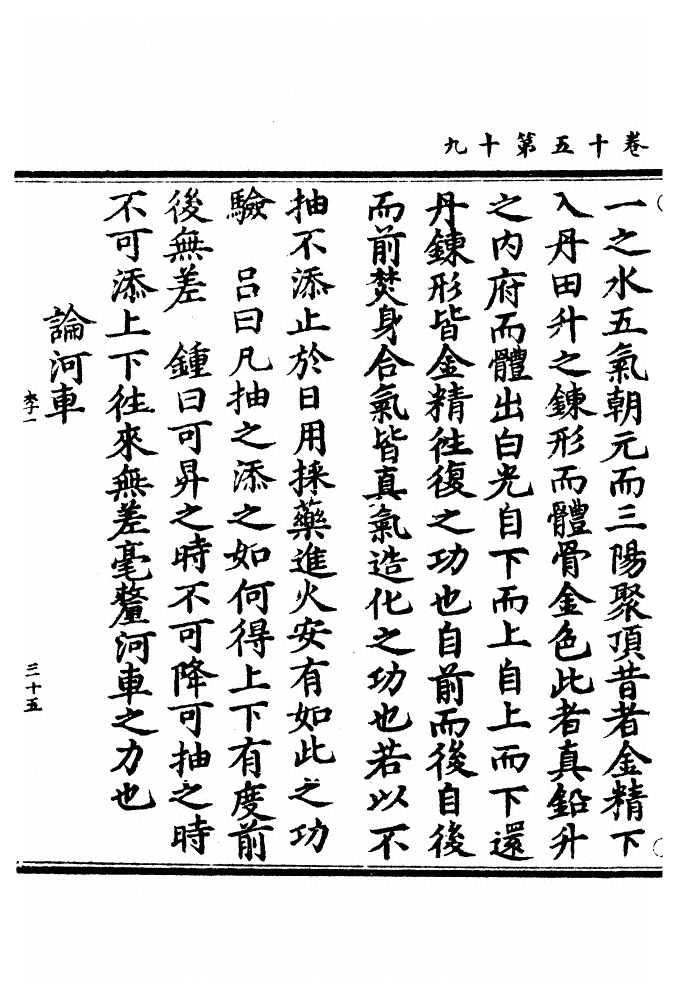 卷十五第十九
一之水五氣朝元而三陽聚頂昔者金精下
入丹田升之鍊形而體骨金色此者真鉛升
之內府而體出白光自下而上自上而下還
丹鍊形皆金精徃復之功也自前而後自後
而前焚身合氣皆真氣造化之功也若以不
抽不添止於日用採藥進火安有如此之功
驗　呂曰凡抽之添之如何得上下有度前
後無差　鍾曰可昇之時不可降可抽之時
不可添上下徃來無差毫釐河車之力也
論河車
三十五